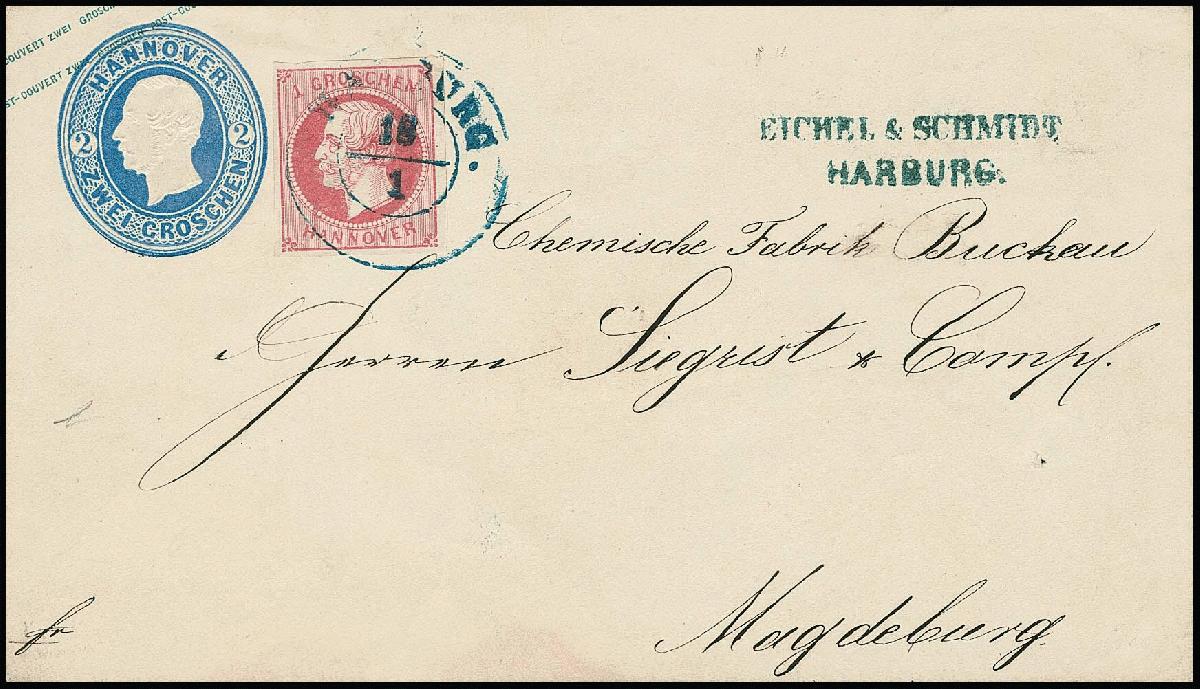 COUVERT ZWEI GROSCHEN POST-COUVERT ZWEI GROSCHEN POST-COU
HANNOVER
2 2
ZWEI GROSCHEN
1 GROSCHEN
HANNOVER
BURG.
18
1
EICHEL & SCHMIDT
HARBURG.
Chemische Fabrik Buckau
Herren Siegrist & Comp.
Magdeburg
fr